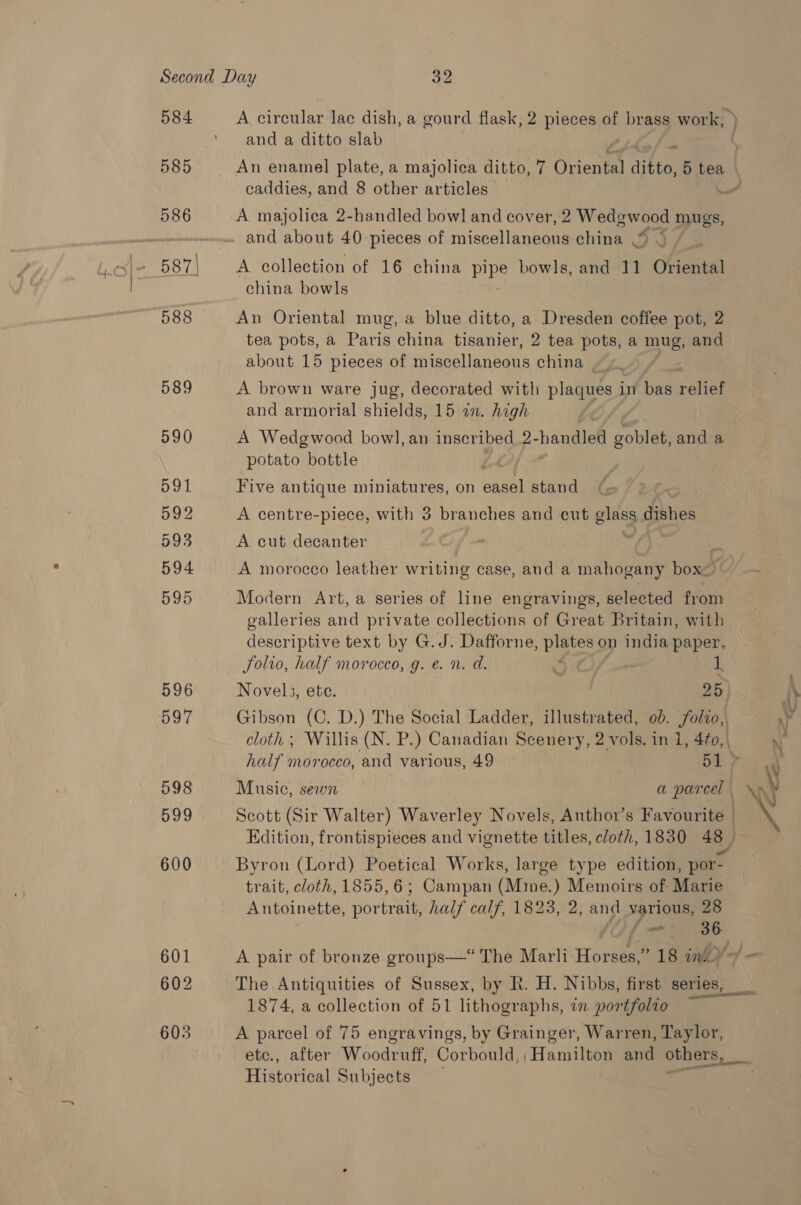 Second Day 32
584 A circular lac dish, a gourd flask, 2 pieces of brass work,
and a ditto slab
585 An enamel plate, a majolica ditto, 7 Oriental ditto, 5 tea
caddies, and 8 other articles
586 A majolica 2-handled bowl and cover, 2 Wedgwood mugs,
and about 40 pieces of miscellaneous china
587 A collection of 16 china pipe bowls, and 11 Oriental
china bowls
588 An Oriental mug, a blue ditto, a Dresden coffee pot, 2
tea pots, a Paris china tisanier, 2 tea pots, a mug, and
about 15 pieces of miscellaneous china
589 A brown ware jug, decorated with plaques in bas relief
and armorial shields, 15 in. high
590 A Wedgwood bowl, an inscribed 2-handled goblet, and a
potato bottle
591 Five antique miniatures, on easel stand
592 A centre-piece, with 3 branches and cut glass dishes
593 A cut decanter
594 A morocco leather writing case, and a mahogany box
595 Modern Art, a series of line engravings, selected from
galleries and private collections of Great Britain, with
descriptive text by G. J. Dafforne, plates on india paper,
folio, half morocco, g. e. n. d. 1
596 Novels, etc. 25
597 Gibson (C. D.) The Social Ladder, illustrated, ob. folio,
cloth ; Willis (N. P.) Canadian Scenery, 2 vols. in 1, 4to,
half morocco, and various, 49 51
598 Music, sewn a parcel
599 Scott (Sir Walter) Waverley Novels, Author's Favourite
Edition, frontispieces and vignette titles, cloth, 1830 48
600 Byron (Lord) Poetical Works, large type edition, por-
trait, cloth, 1855, 6 ; Campan (Mme.) Memoirs of Marie
Antoinette, portrait, half calf, 1823, 2, and various, 28
36
601 A pair of bronze groups—“ The Marli Horses,” 18 in.
602 The Antiquities of Sussex, by R. H. Nibbs, first series,
1874, a collection of 51 lithographs, in portfolio
603 A parcel of 75 engravings, by Grainger, Warren, Taylor,
etc., after Woodruff, Corbould, Hamilton and others,
Historical Subjects